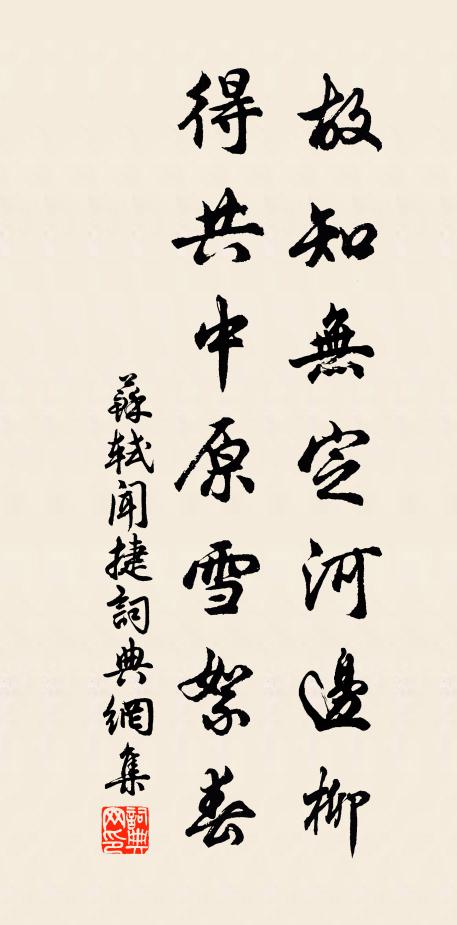 故知無定河邊柳
得共中原雪絮春
蘇軾聞捷詞典網集
詞典網印